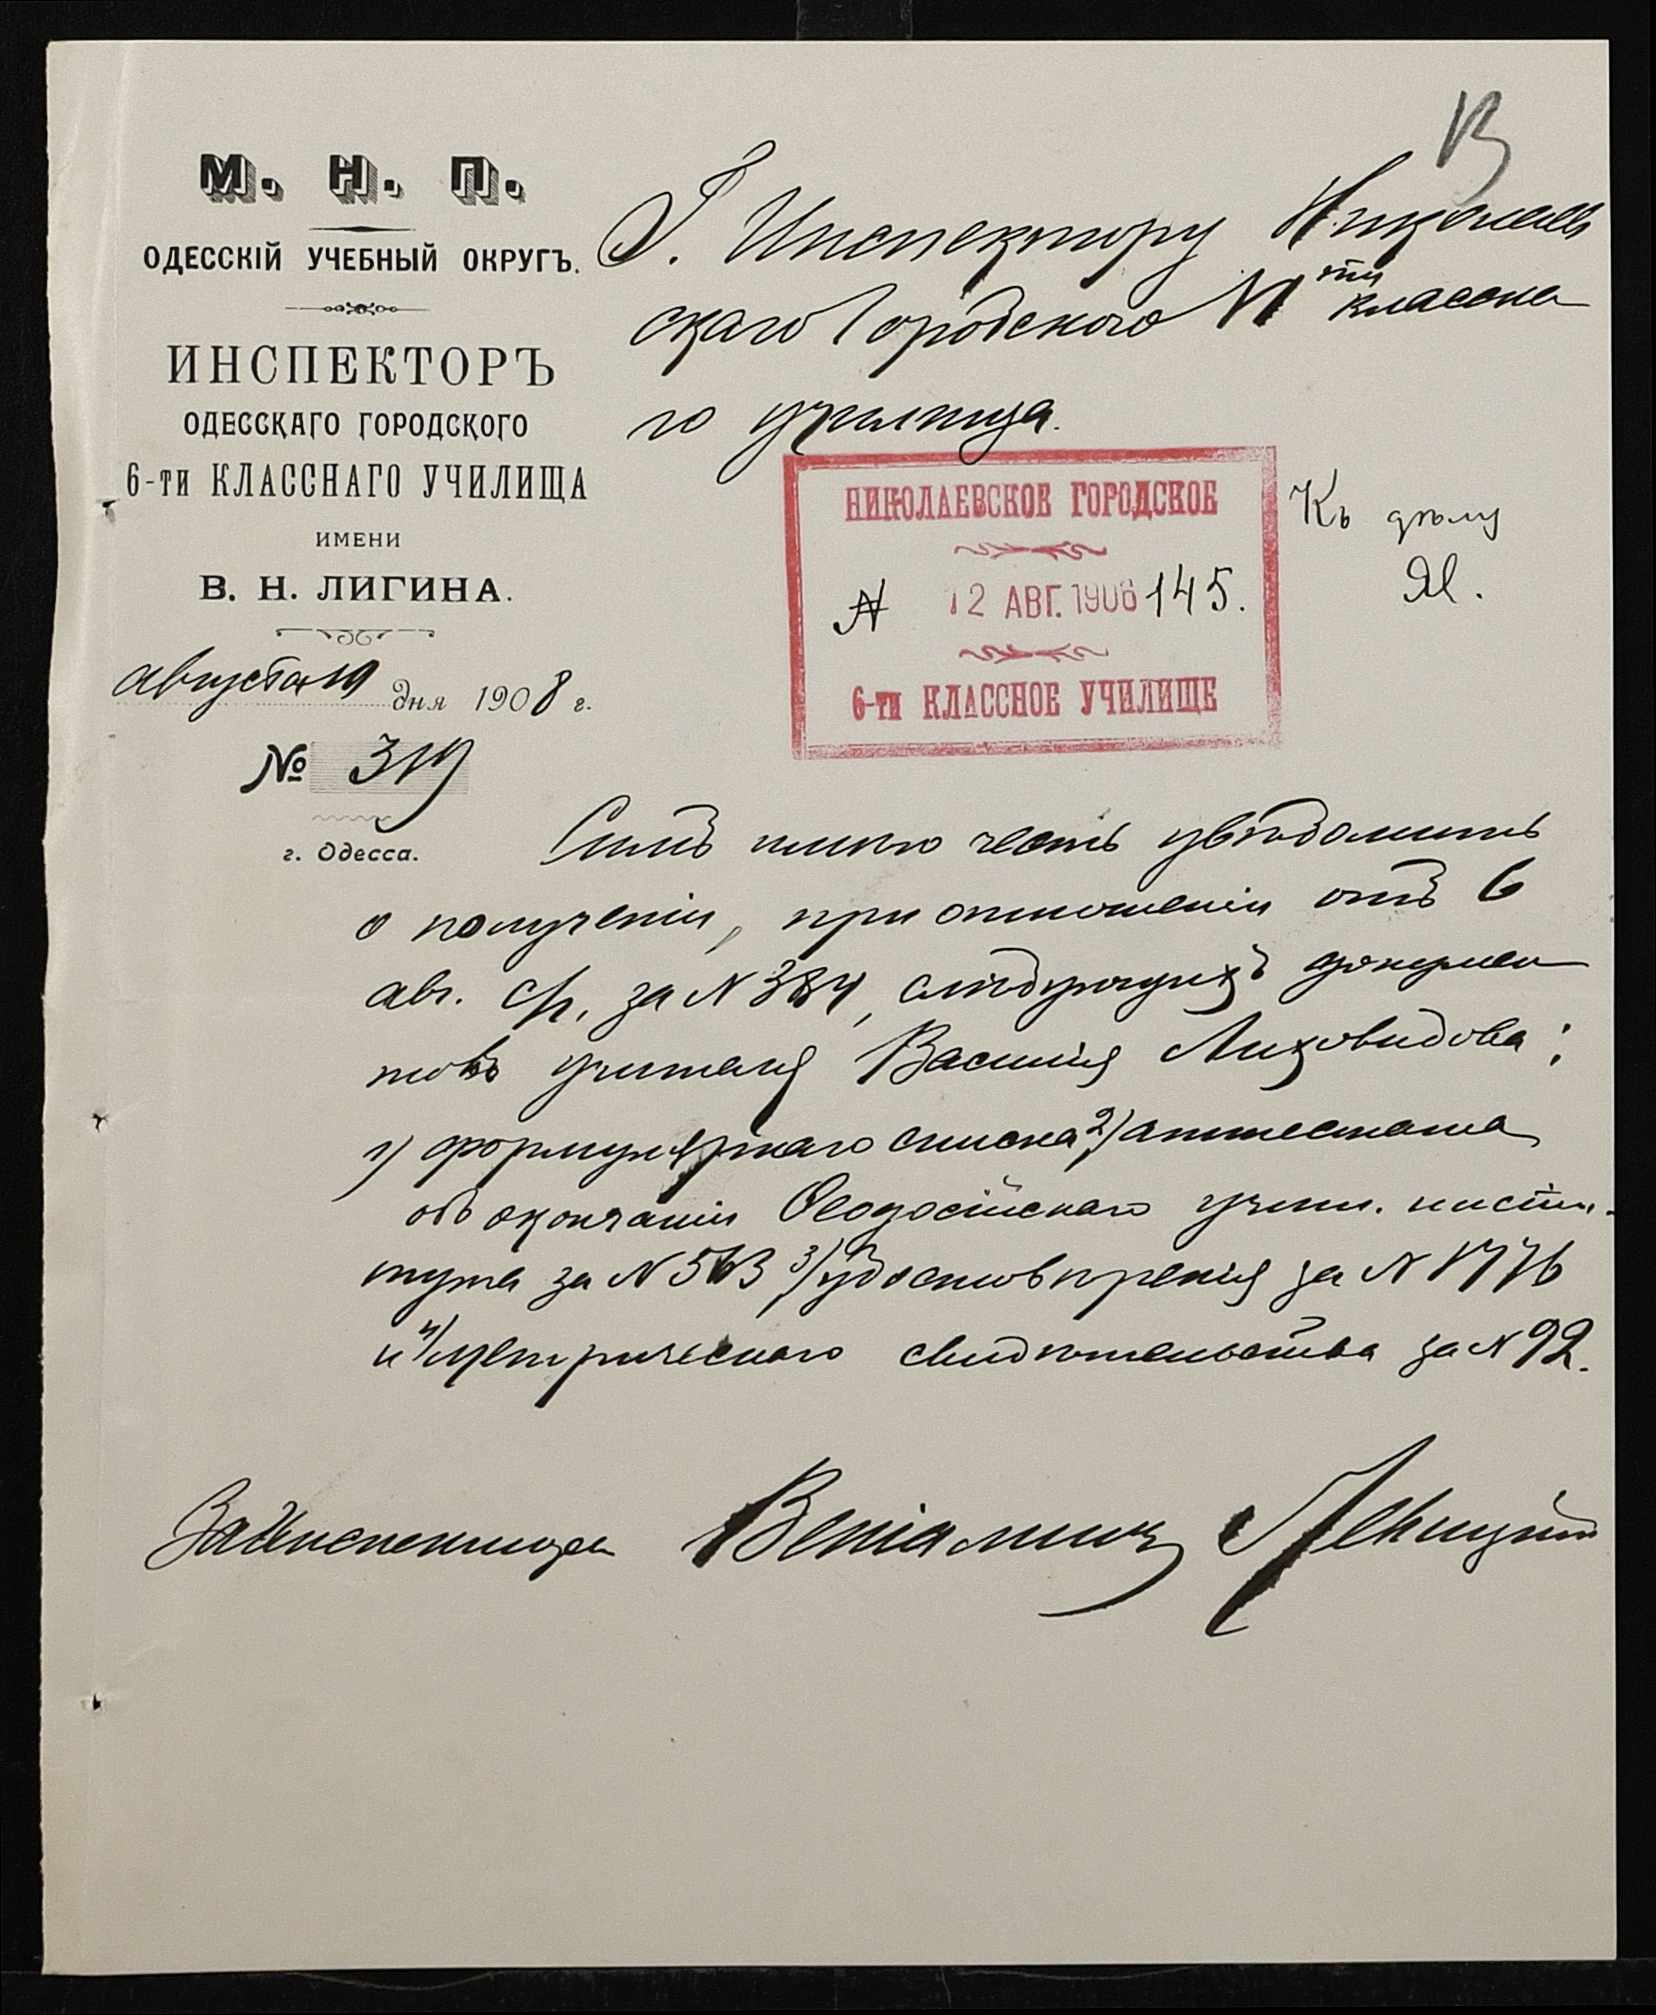 М. Н. П.
ОДЕССКІЙ УЧЕБНЫЙ ОКРУГЪ.
ИНСПЕКТОРЪ
ОДЕССКАГО ГОРОДСКОГО
6-ти КЛАССНАГО УЧИЛИЩА
ИМЕНИ
В. Н. ЛИГИНА.
августа 10 дня 1908 г.
№ 319
г. Одесса.
Г. Инспектору Николаев
скаго Городского VI ти классна
го училища.
НИКОЛАЕВСКОЕ ГОРОДСКОЕ
№ 12 АВГ. 1908 145.
6-ти КЛАССНОЕ УЧИЛИЩЕ
Къ дѣлу
Симъ имѣю честь увѣдомить
о полученіи, при отношеніи отъ 6
авг. с/г. за № 384, слѣдующихъ докумен
товъ учителя Василія Лиховидова:
1) формулярнаго списка 2) аттестата
объ окончаніи Ѳеодосійскаго учит. инсти-
тута за № 563 3) удостовѣренія за № 1776
и 4) метрическаго свидѣтельства за № 92.
За Инспектора Веніаминъ Левицкій